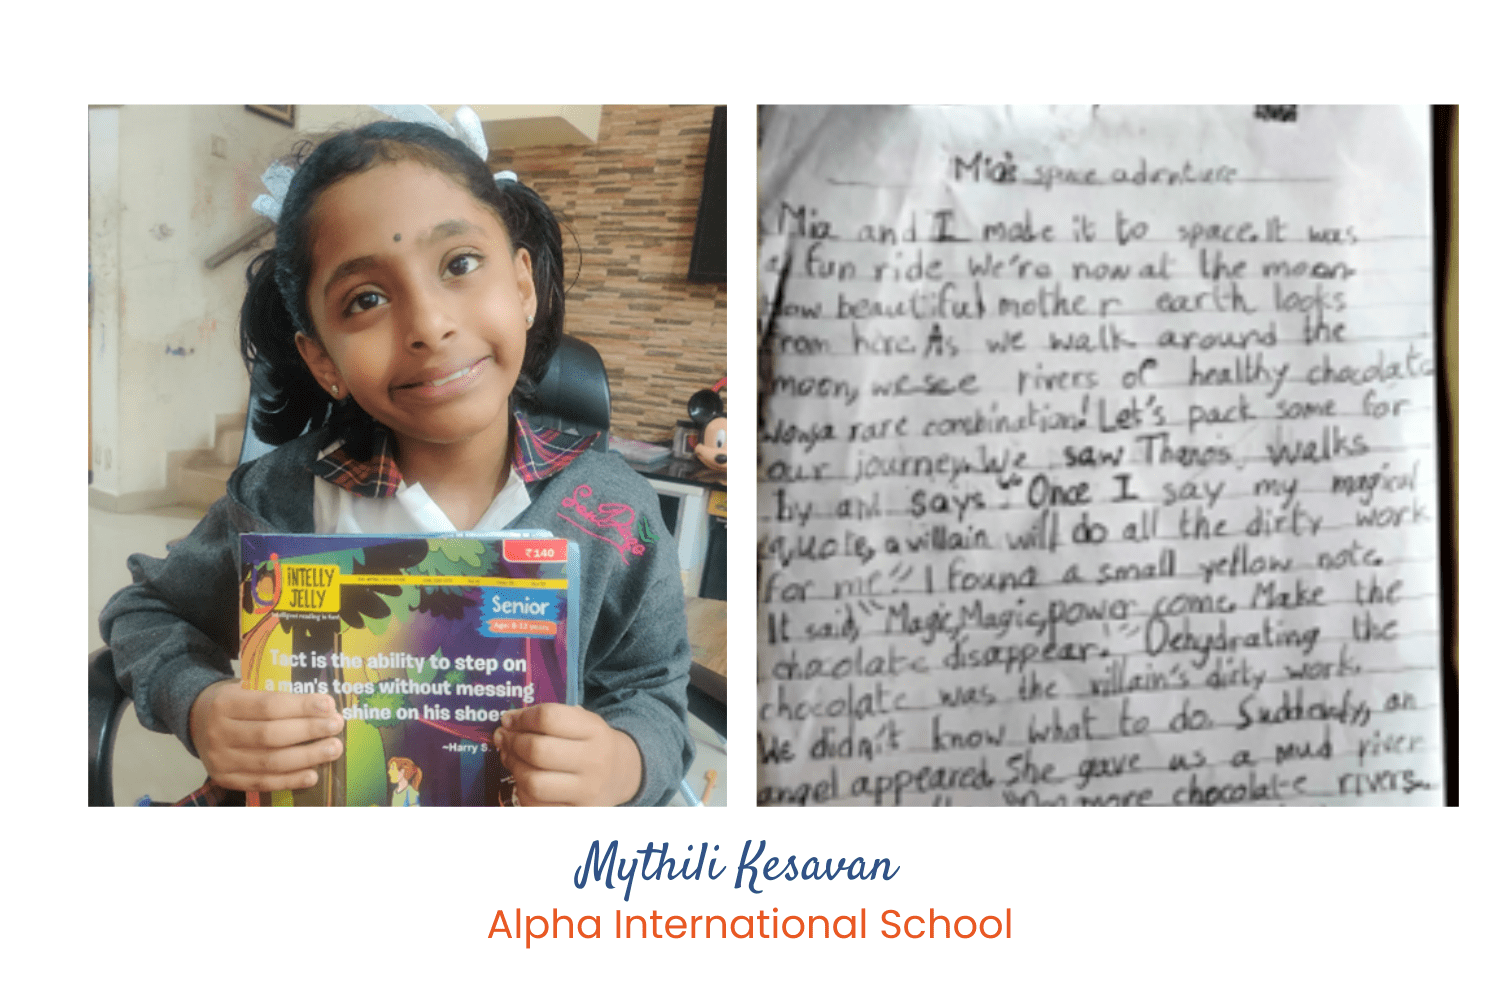 SanDivya
₹140
INTELLY
JELLY
Senior
Age: 8-13 years
Tact is the ability to step on
a man's toes without messing
shine on his shoes
~Harry S.
Mia's space adventure
Mia and I made it to space. It was
a fun ride We're now at the moon.
How beautiful mother earth looks
from here. As we walk around the
moon, we see rivers of healthy chocolate
rare combination! Let's pack some for
our journey. We saw Thanos walks
by and says "Once I say my magical
quote, a villain will do all the dirty work
for me" I found a small yellow note.
It said, "Magic, Magic, power come. Make the
chaolate disappear." Dehydrating the
chocolate was the villain's dirty work.
We didn't know what to do. Suddenly, an
angel appeared. She gave us a mud river
more chocolate rivers.
Mythili Kesavan
Alpha International School